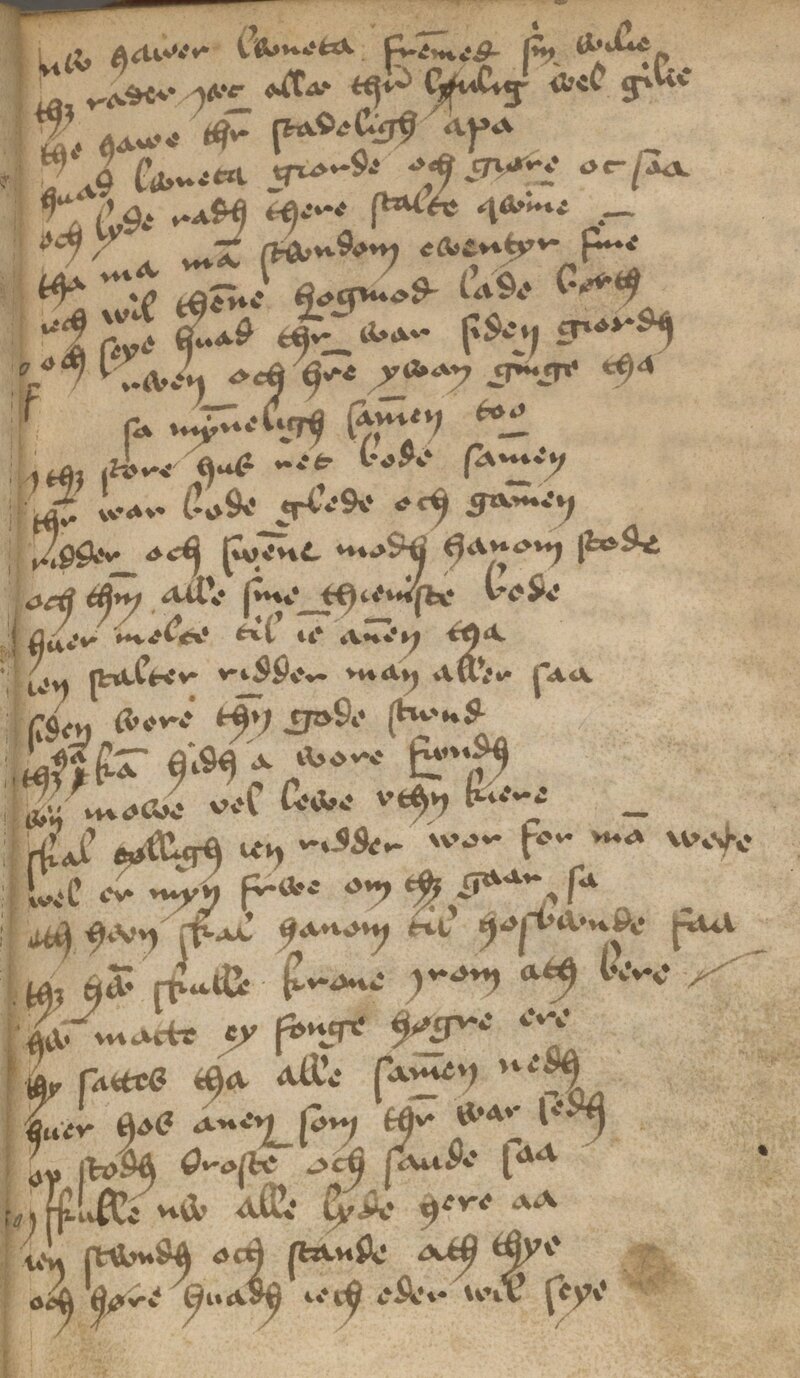 nw hawer lwneta fre̅med sin wilie
thʒ rader iæt allæ thr̅ lythulig wel gilie
the hawe thr̅ stadeligh apa
huad lwneta giorde och giøre oc saa
och lyde radh there stalte qwin̅e
tha ma ma̅ stwndom ewentyr fin̅e
iech wil the̅ne hogmod lade borth
och seye huad thr̅ war siden giordh
rwen och hr̅e ywan ginge tha
sa myn̅eligh sam̅en too
i thʒ store hus ret bode sam̅en
thr̅ war bode glede och gam̅en
ridder och swe̅ne modh hanom stode
och thm̅ alle sine thieniste bøde
huer melte til ie̅ an̅en tha
ien stalter ridder man aller saa
siden wore thn̅ gode stwnd
thʒ ha̅ ka̅ hidh a wore fwndh
wij mowe vel lewe vthn̅ kiere
skal sølligh ien ridder wor for ma̅ were
wel er myn frwe om thʒ gaar sa
ath hwn skal hanom til hosbwnde faa
thʒ hw̅ skulle krone i rom ath bere
hw̅ matte ey fonge høgre ere
thy sattes tha alle sam̅en nedh
huer hos anen som thr̅ war sedh
op stodh droste̅ och sande saa
i skulle nw alle lyde here aa
ien stwndh och stande ath thye
och høre huadh iech eder wil seye